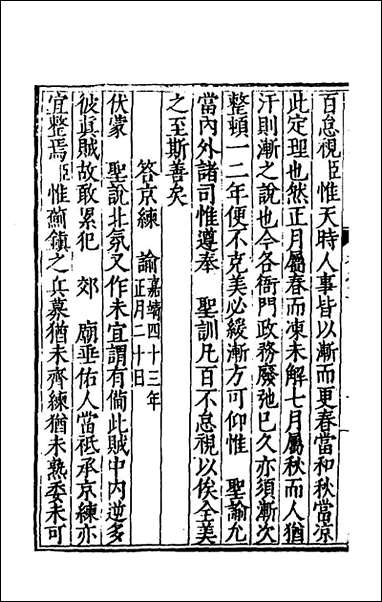 百怠視臣惟天時人事皆以漸而更春當和秋當凉
此定理也然正月屬春而凍未解七月屬秋而人猶
汗則漸之說也今各衙門政務廢弛已久亦須漸次
整頓一二年便不克美必緩漸方可仰惟 聖諭允
當內外諸司惟遵奉 聖訓凡百不怠視以俟全美
之至斯善矣
答京練 諭嘉靖四十三年
正月二十日
伏蒙 聖說北氛又作未宜謂有備此賊中內逆多
彼眞賊故敢累犯 郊 廟垂佑人當祗承京練亦
宜整焉臣惟薊鎮之兵募猶未齊練猶未熟委未可